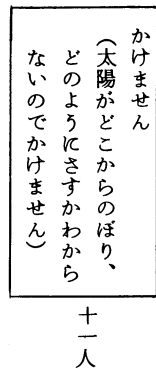 かけません
(太陽がどこからのぼり、
どのようにさすかわから
ないのでかけません)
十一人